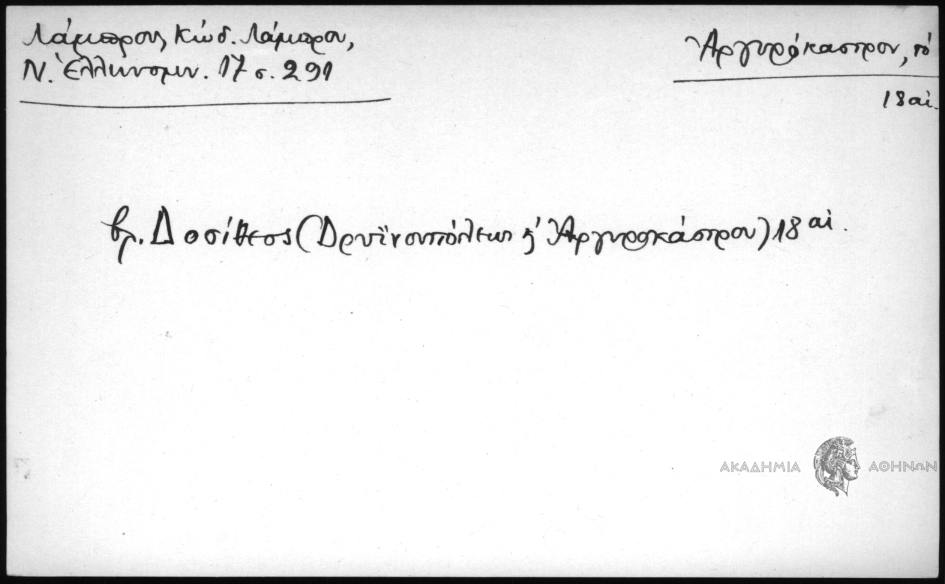 Λάμπρου, Κώδ. Λάμπρου,
Ν. Ἑλληνομν. 17 σ. 291
Ἀργυρόκαστρον, τό
18 αἰ.
βλ. Δοσίθεος (Δρυϊνουπόλεως ἤ Ἀργυροκάστρου) 18 αἰ.
ΑΚΑΔΗΜΙΑ ΑΘΗΝΩΝ